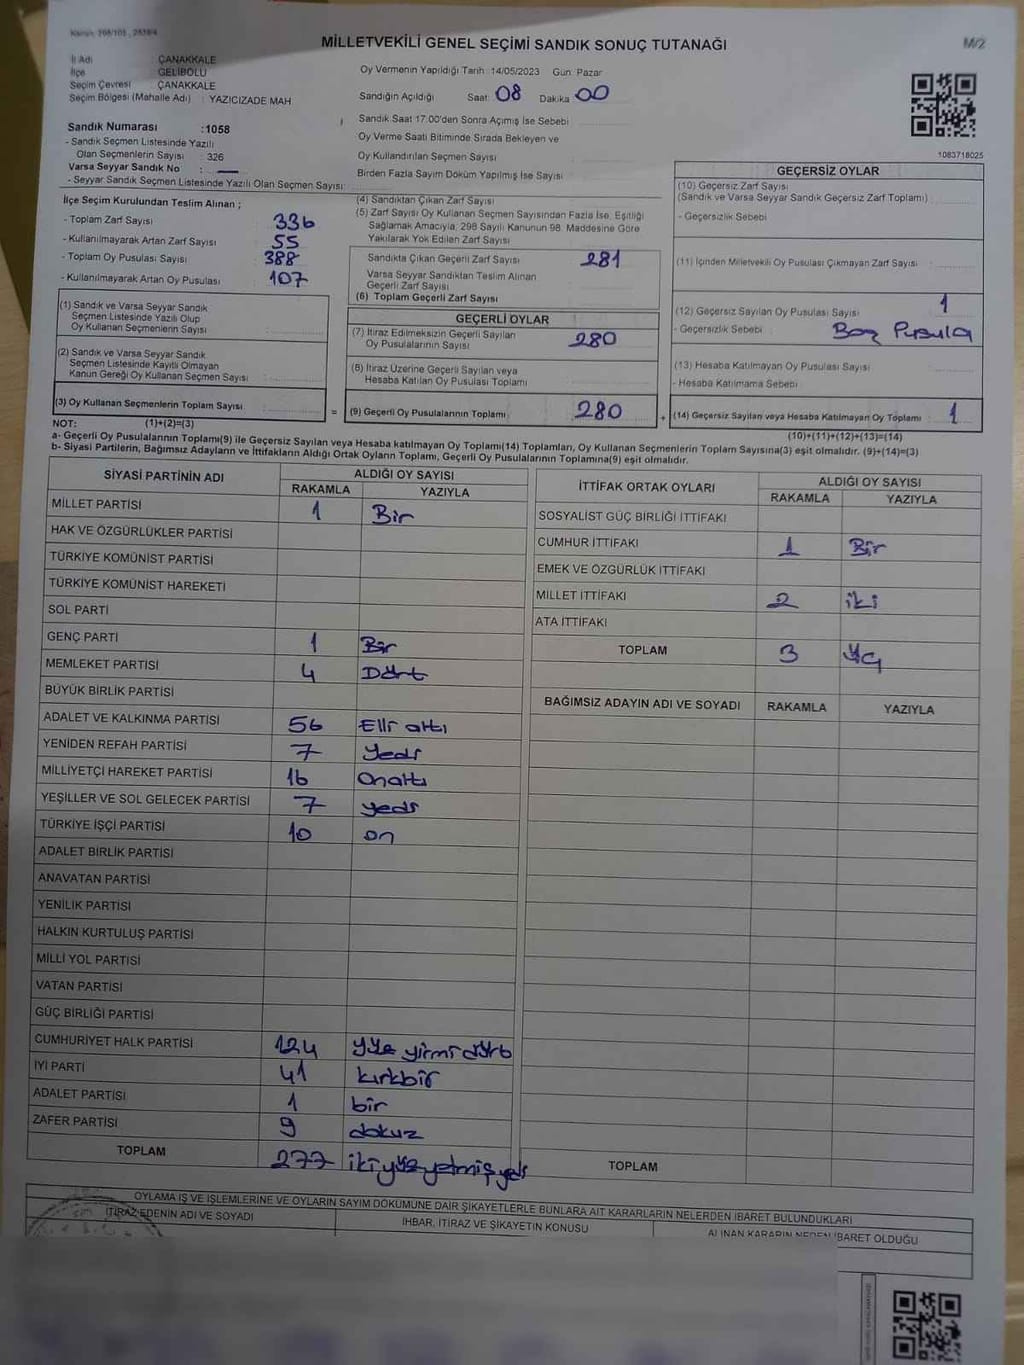 MİLLETVEKİLİ GENEL SEÇİMİ SANDIK SONUÇ TUTANAĞI
M/2
İl Adı ÇANAKKALE
İlçe GELİBOLU
Seçim Çevresi ÇANAKKALE
Seçim Bölgesi (Mahalle Adı) : YAZICIZADE MAH.
Oy Vermenin Yapıldığı Tarih :14/05/2023 Gün: Pazar
Sandığın Açıldığı Saat: 08 Dakika 00
Sandık Saat 17.00'den Sonra Açımış İse Sebebi
Oy Verme Saati Bitiminde Sırada Bekleyen ve
Oy Kullandırılan Seçmen Sayısı
Birden Fazla Sayım Döküm Yapılmış İse Sayısı
1083718025
Sandık Numarası :1058
- Sandık Seçmen Listesinde Yazılı
Olan Seçmenlerin Sayısı : 326
Varsa Seyyar Sandık No : —
- Seyyar Sandık Seçmen Listesinde Yazılı Olan Seçmen Sayısı:
İlçe Seçim Kurulundan Teslim Alınan ;
- Toplam Zarf Sayısı : 336
- Kullanılmayarak Artan Zarf Sayısı : 55
- Toplam Oy Pusulası Sayısı : 388
- Kullanılmayarak Artan Oy Pusulası : 107
(1) Sandık ve Varsa Seyyar Sandık
Seçmen Listesinde Yazılı Olup
Oy Kullanan Seçmenlerin Sayısı :
(2) Sandık ve Varsa Seyyar Sandık
Seçmen Listesinde Kayıtlı Olmayan
Kanun Gereği Oy Kullanan Seçmen Sayısı :
(3) Oy Kullanan Seçmenlerin Toplam Sayısı :
(4) Sandıktan Çıkan Zarf Sayısı :
(5) Zarf Sayısı Oy Kullanan Seçmen Sayısından Fazla İse, Eşitliği
Sağlamak Amacıyla, 298 Sayılı Kanunun 98. Maddesine Göre
Yakılarak Yok Edilen Zarf Sayısı
Sandıkta Çıkan Geçerli Zarf Sayısı : 281
Varsa Seyyar Sandıktan Teslim Alınan
Geçerli Zarf Sayısı
(6) Toplam Geçerli Zarf Sayısı
GEÇERLİ OYLAR
(7) İtiraz Edilmeksizin Geçerli Sayılan
Oy Pusulalarının Sayısı 280
(8) İtiraz Üzerine Geçerli Sayılan veya
Hesaba Katılan Oy Pusulası Toplamı
= (9) Geçerli Oy Pusulalarının Toplamı 280 +
GEÇERSİZ OYLAR
(10) Geçersiz Zarf Sayısı
(Sandık ve Varsa Seyyar Sandık Geçersiz Zarf Toplamı) :
- Geçersizlik Sebebi
(11) İçinden Milletvekili Oy Pusulası Çıkmayan Zarf Sayısı
(12) Geçersiz Sayılan Oy Pusulası Sayısı : 1
- Geçersizlik Sebebi : Boş Pusula
(13) Hesaba Katılmayan Oy Pusulası Sayısı
- Hesaba Katılmama Sebebi
(14) Geçersiz Sayılan veya Hesaba Katılmayan Oy Toplamı 1
NOT: (1)+(2)=(3)
(10)+(11)+(12)+(13)=(14)
a- Geçerli Oy Pusulalarının Toplamı(9) ile Geçersiz Sayılan veya Hesaba katılmayan Oy Toplamı(14) Toplamları, Oy Kullanan Seçmenlerin Toplam Sayısına(3) eşit olmalıdır. (9)+(14)=(3)
b- Siyasi Partilerin, Bağımsız Adayların ve İttifakların Aldığı Ortak Oyların Toplamı, Geçerli Oy Pusulalarının Toplamına(9) eşit olmalıdır.
SİYASİ PARTİNİN ADI ALDIĞI OY SAYISI
RAKAMLA YAZIYLA
MİLLET PARTİSİ 1 Bir
HAK VE ÖZGÜRLÜKLER PARTİSİ
TÜRKİYE KOMÜNİST PARTİSİ
TÜRKİYE KOMÜNİST HAREKETİ
SOL PARTİ
GENÇ PARTİ 1 Bir
MEMLEKET PARTİSİ 4 Dört
BÜYÜK BİRLİK PARTİSİ
ADALET VE KALKINMA PARTİSİ 56 Elli altı
YENİDEN REFAH PARTİSİ 7 Yedi
MİLLİYETÇİ HAREKET PARTİSİ 16 Onaltı
YEŞİLLER VE SOL GELECEK PARTİSİ 7 yedi
TÜRKİYE İŞÇİ PARTİSİ 10 on
ADALET BİRLİK PARTİSİ
ANAVATAN PARTİSİ
YENİLİK PARTİSİ
HALKIN KURTULUŞ PARTİSİ
MİLLİ YOL PARTİSİ
VATAN PARTİSİ
GÜÇ BİRLİĞİ PARTİSİ
CUMHURİYET HALK PARTİSİ 124 yüz yirmi dört
İYİ PARTİ 41 kırkbir
ADALET PARTİSİ 1 bir
ZAFER PARTİSİ 9 dokuz
TOPLAM 277 ikiyüz yetmiş yedi
İTTİFAK ORTAK OYLARI ALDIĞI OY SAYISI
RAKAMLA YAZIYLA
SOSYALİST GÜÇ BİRLİĞİ İTTİFAKI
CUMHUR İTTİFAKI 1 Bir
EMEK VE ÖZGÜRLÜK İTTİFAKI
MİLLET İTTİFAKI 2 iki
ATA İTTİFAKI
TOPLAM 3 Üç
BAĞIMSIZ ADAYIN ADI VE SOYADI RAKAMLA YAZIYLA
TOPLAM
OYLAMA İŞ VE İŞLEMLERİNE VE OYLARIN SAYIM DÖKÜMÜNE DAİR ŞİKAYETLERLE BUNLARA AİT KARARLARIN NELERDEN İBARET BULUNDUKLARI
İTİRAZ EDENİN ADI VE SOYADI
İHBAR, İTİRAZ VE ŞİKAYETİN KONUSU
ALINAN KARARIN NEDEN İBARET OLDUĞU